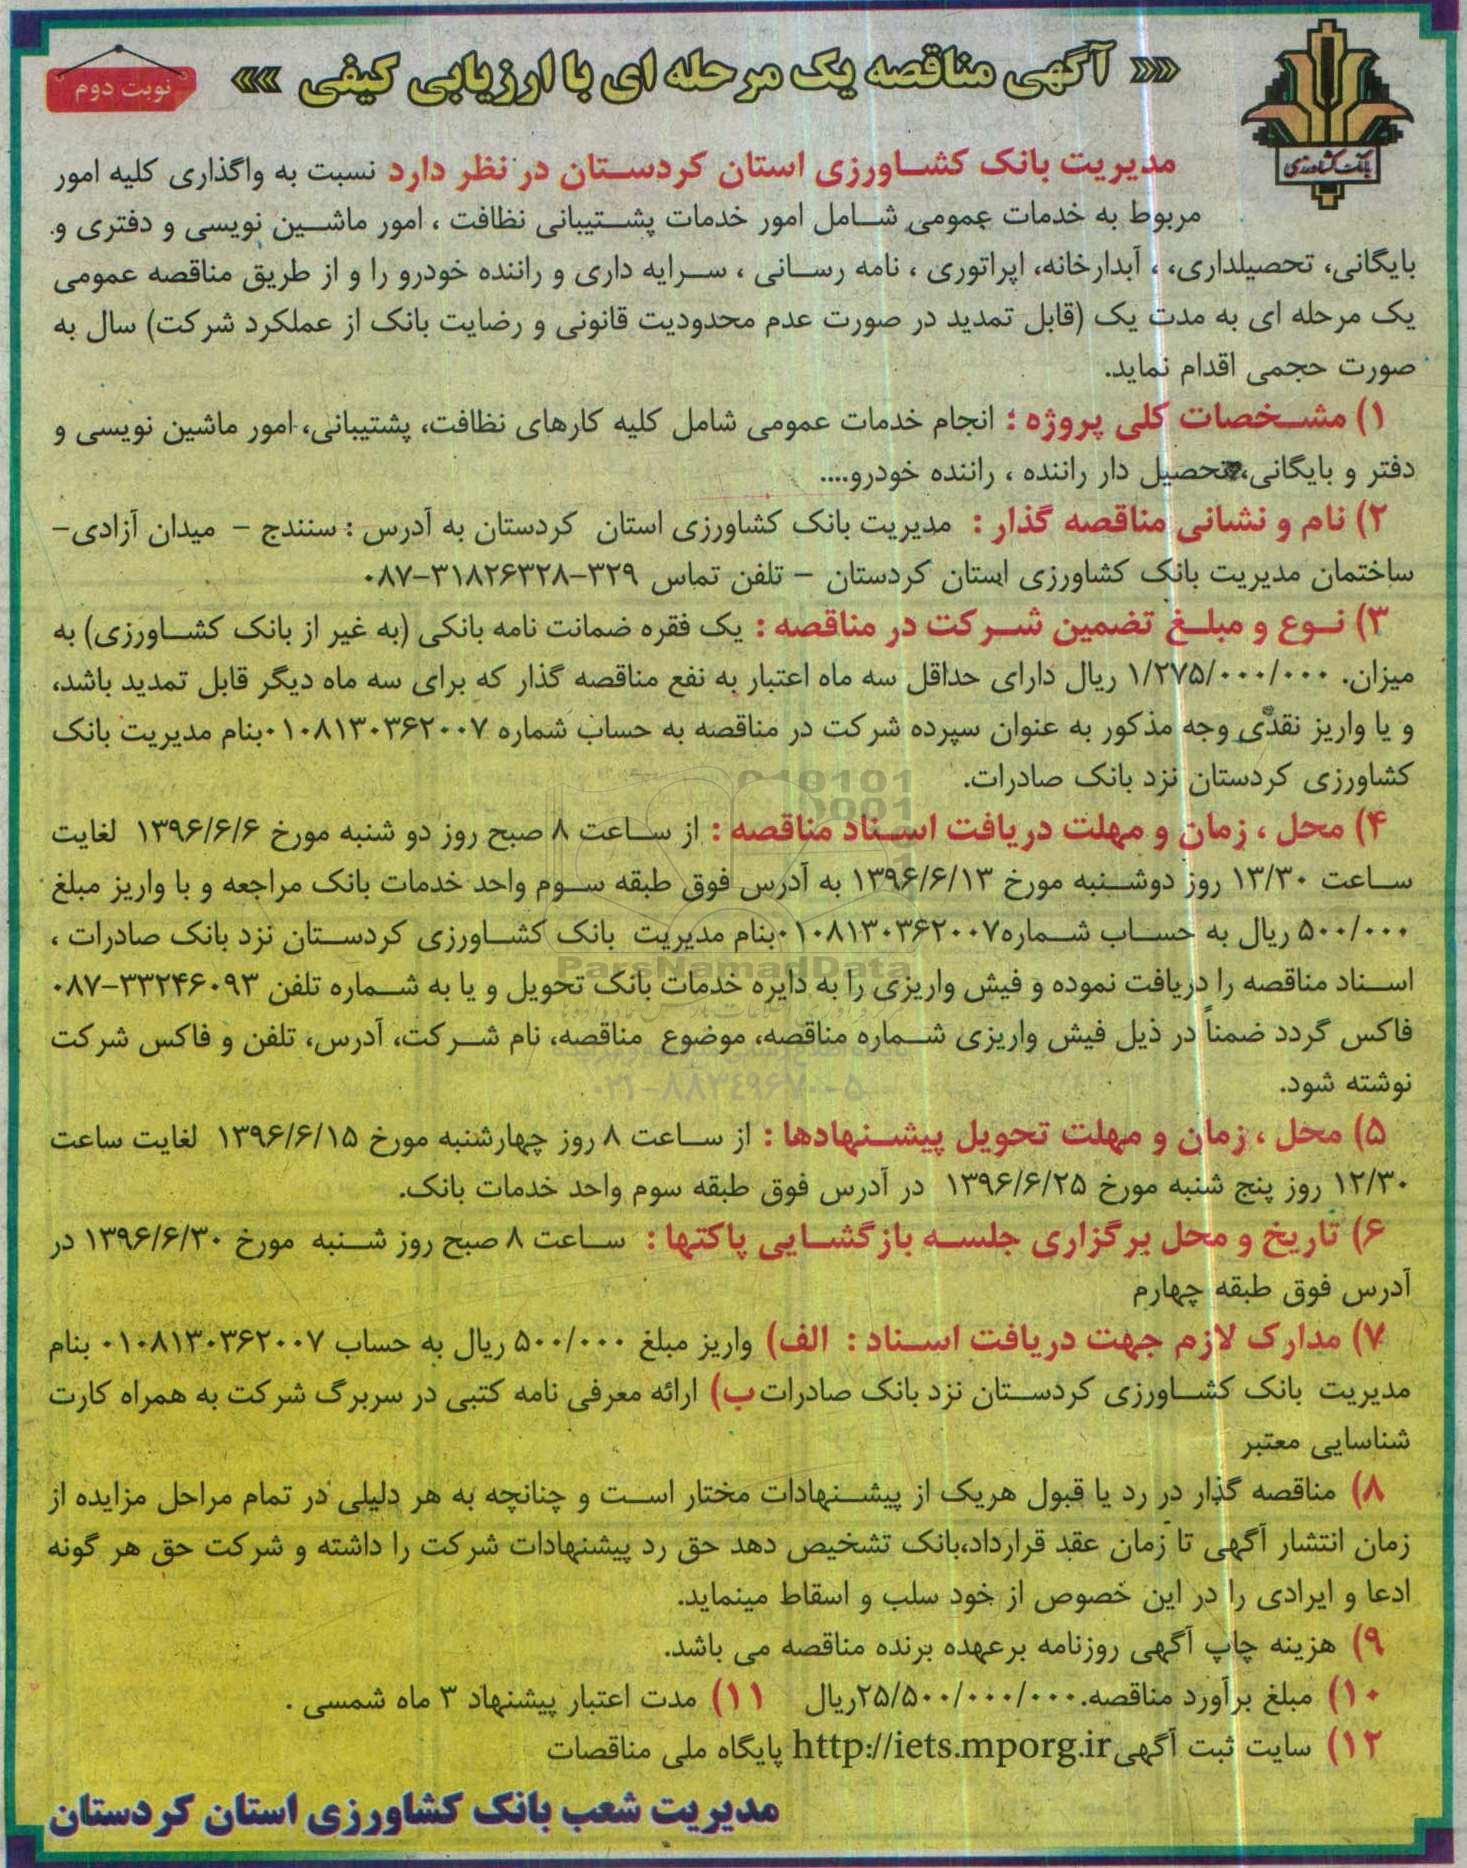 « آگهی مناقصه یک مرحله ای با ارزیابی کیفی »
نوبت دوم
بانک کشاورزی
مدیریت بانک کشاورزی استان کردستان در نظر دارد نسبت به واگذاری کلیه امور
مربوط به خدمات عمومی شامل امور خدمات پشتیبانی نظافت ، امور ماشین نویسی و دفتری و
بایگانی، تحصیلداری، ، آبدارخانه، اپراتوری ، نامه رسانی ، سرایه داری و راننده خودرو را و از طریق مناقصه عمومی
یک مرحله ای به مدت یک (قابل تمدید در صورت عدم محدودیت قانونی و رضایت بانک از عملکرد شرکت) سال به
صورت حجمی اقدام نماید.
۱) مشخصات کلی پروژه : انجام خدمات عمومی شامل کلیه کارهای نظافت، پشتیبانی، امور ماشین نویسی و
دفتر و بایگانی، تحصیل دار راننده ، راننده خودرو....
۲) نام و نشانی مناقصه گذار : مدیریت بانک کشاورزی استان کردستان به آدرس : سنندج – میدان آزادی–
ساختمان مدیریت بانک کشاورزی استان کردستان – تلفن تماس ۳۲۹-۳۱۸۲۶۳۲۸-۰۸۷
۳) نوع و مبلغ تضمین شرکت در مناقصه : یک فقره ضمانت نامه بانکی (به غیر از بانک کشاورزی) به
میزان. ۱/۲۷۵/۰۰۰/۰۰۰ ریال دارای حداقل سه ماه اعتبار به نفع مناقصه گذار که برای سه ماه دیگر قابل تمدید باشد،
و یا واریز نقدی وجه مذکور به عنوان سپرده شرکت در مناقصه به حساب شماره ۰۱۰۸۱۳۰۳۶۲۰۰۷بنام مدیریت بانک
کشاورزی کردستان نزد بانک صادرات.
۴) محل ، زمان و مهلت دریافت اسناد مناقصه : از ساعت ۸ صبح روز دو شنبه مورخ ۱۳۹۶/۶/۶ لغایت
ساعت ۱۳/۳۰ روز دوشنبه مورخ ۱۳۹۶/۶/۱۳ به آدرس فوق طبقه سوم واحد خدمات بانک مراجعه و با واریز مبلغ
۵۰۰/۰۰۰ ریال به حساب شماره۰۱۰۸۱۳۰۳۶۲۰۰۷بنام مدیریت بانک کشاورزی کردستان نزد بانک صادرات ،
اسناد مناقصه را دریافت نموده و فیش واریزی را به دایره خدمات بانک تحویل و یا به شماره تلفن ۳۳۲۴۶۰۹۳-۰۸۷
فاکس گردد ضمناً در ذیل فیش واریزی شماره مناقصه، موضوع مناقصه، نام شرکت، آدرس، تلفن و فاکس شرکت
نوشته شود.
۵) محل ، زمان و مهلت تحویل پیشنهادها : از ساعت ۸ روز چهارشنبه مورخ ۱۳۹۶/۶/۱۵ لغایت ساعت
۱۲/۳۰ روز پنج شنبه مورخ ۱۳۹۶/۶/۲۵ در آدرس فوق طبقه سوم واحد خدمات بانک.
۶) تاریخ و محل برگزاری جلسه بازگشایی پاکتها : ساعت ۸ صبح روز شنبه مورخ ۱۳۹۶/۶/۳۰ در
آدرس فوق طبقه چهارم
۷) مدارک لازم جهت دریافت اسناد : الف) واریز مبلغ ۵۰۰/۰۰۰ ریال به حساب ۰۱۰۸۱۳۰۳۶۲۰۰۷ بنام
مدیریت بانک کشاورزی کردستان نزد بانک صادرات ب) ارائه معرفی نامه کتبی در سربرگ شرکت به همراه کارت
شناسایی معتبر
۸) مناقصه گذار در رد یا قبول هریک از پیشنهادات مختار است و چنانچه به هر دلیلی در تمام مراحل مزایده از
زمان انتشار آگهی تا زمان عقد قرارداد،بانک تشخیص دهد حق رد پیشنهادات شرکت را داشته و شرکت حق هر گونه
ادعا و ایرادی را در این خصوص از خود سلب و اسقاط مینماید.
۹) هزینه چاپ آگهی روزنامه برعهده برنده مناقصه می باشد.
۱۰) مبلغ برآورد مناقصه.۲۵/۵۰۰/۰۰۰/۰۰۰ریال ۱۱) مدت اعتبار پیشنهاد ۳ ماه شمسی .
۱۲) سایت ثبت آگهی http://iets.mporg.ir پایگاه ملی مناقصات
مدیریت شعب بانک کشاورزی استان کردستان
ParsNamadData
۰۲۱-۸۸۳۴۹۶۷۰-۵